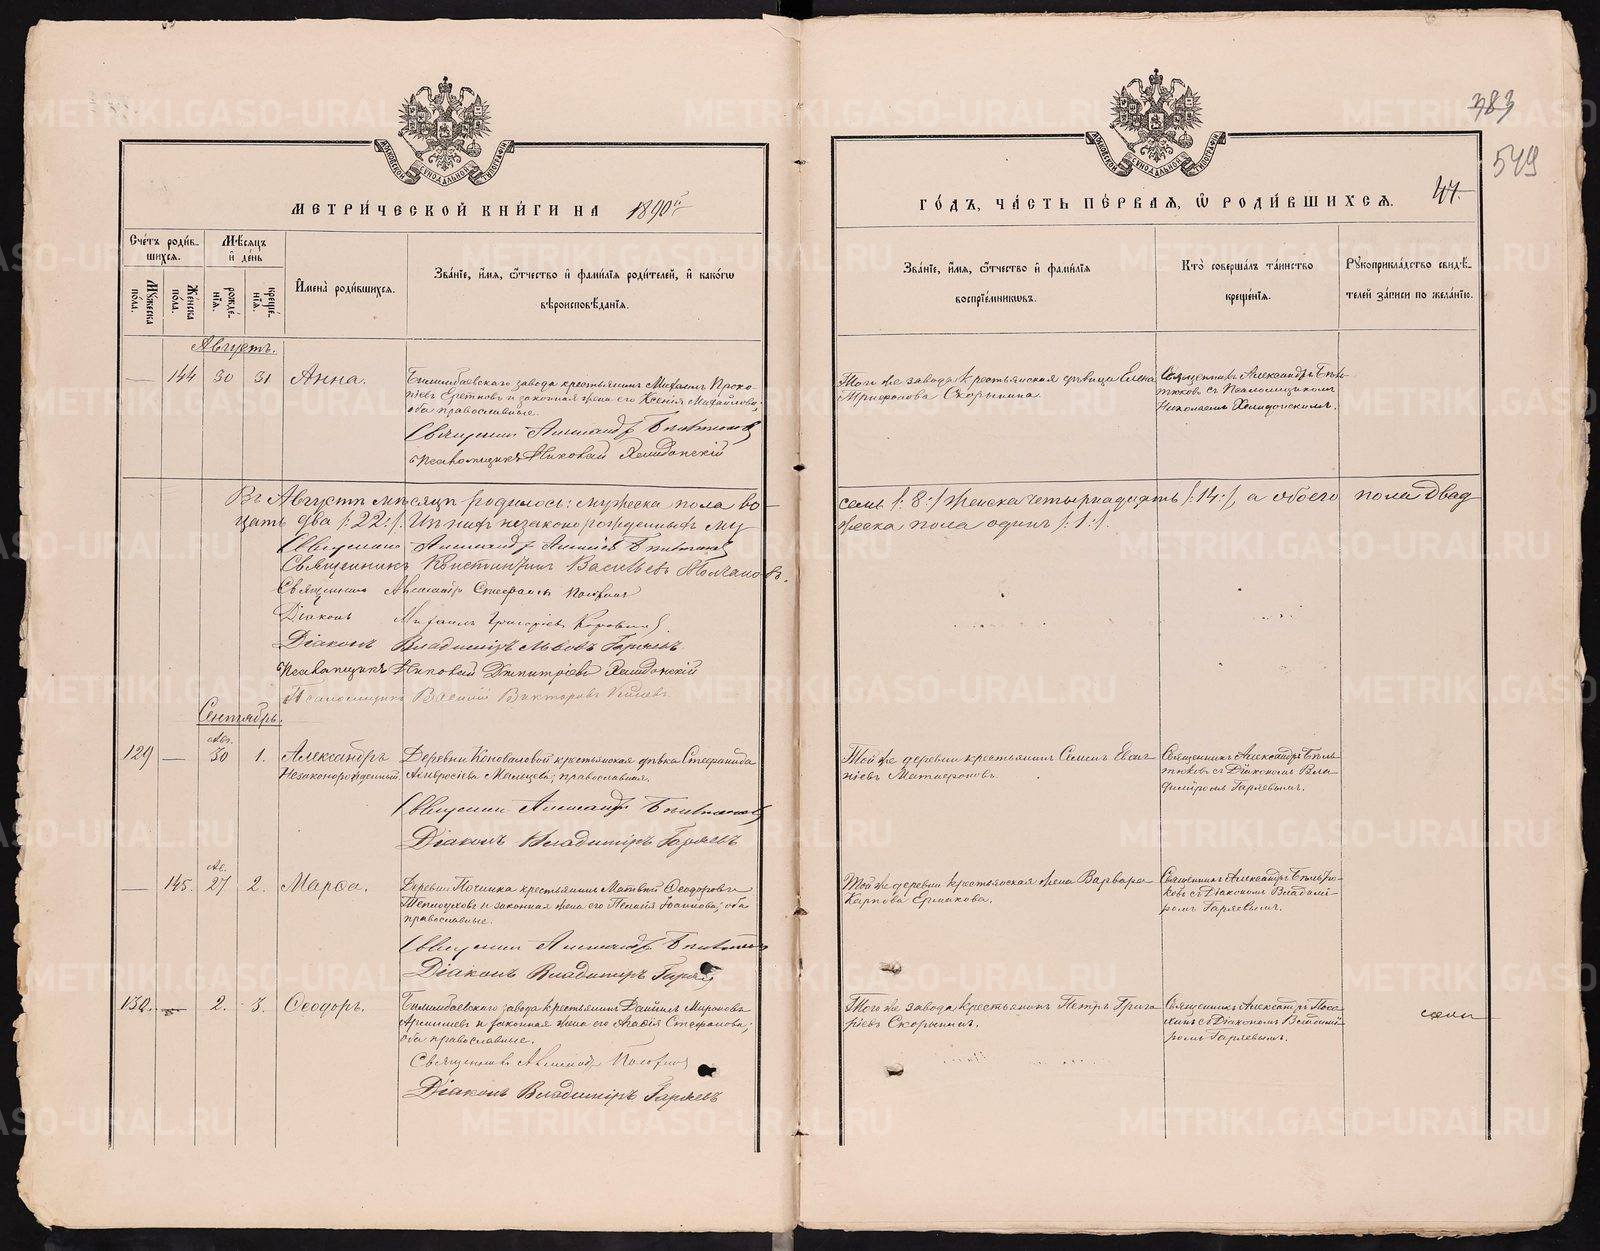 383
549
47.
МЕТРИ́ЧЕСКОЙ КНИ́ГИ НА 1890й
ГО́ДЪ, ЧА́СТЬ ПЕ́РВАЯ, Ѡ РОДИ́ВШИХСЯ.
Сче́тъ роди́в-
шихся.
Мѣ́сяцъ
и҆ де́нь
Мꙋ́жеска
по́ла.
Же́нска
по́ла.
рожде́-
нїя.
креще́-
нїя.
И҆мена̀ роди́вшихся.
Зва́нїе, и҆́мя, ѻ҆́тчество и҆ фами́лїя роди́телей, и҆ како́гѡ
вѣроисповѣ́данїя.
Зва́нїе, и҆́мя, ѻ҆́тчество и҆ фами́лїя
воспрїе́мникѡвъ.
Кто̀ соверша́лъ та́инство
креще́нїя.
Рꙋкоприкла́дство свидѣ́-
телей за́писи по жела́нїю.
Августъ.
— 144 30 31 Анна.
Билимбаевскаго завода крестьянинъ Михаилъ Проко-
піевъ и законная жена его Ксенія Михайлова;
оба православные.
Священникъ Александръ
Псаломщикъ Николай
Того же завода крестьянская дѣвица Елена
Скорынина.
Священникъ Александръ
съ Псаломщикомъ
Николаемъ
Въ Августѣ мѣсяцѣ родилось: мужеска пола во-
семь /: 8 :/ женска четырнадцать /: 14 :/, а обоего пола двад
цать два /: 22 :/. Изъ нихъ незаконорожденныхъ му
жеска пола одинъ /: 1 :/.
Священникъ Александръ
Священникъ Константинъ Васильевъ
Священникъ Александръ Стефановъ
Діаконъ Михаилъ Григоріевъ
Діаконъ Владиміръ Львовъ Гаряевъ
Псаломщикъ Николай Димитріевъ
Псаломщикъ Василій Викторовъ
Сентябрь.
129 — Авг. 30 1. Александръ
Незаконорожденный.
Деревни Коноваловой крестьянская дѣвка Стефанида
Амвросіева Мальцева; православная.
Священникъ Александръ
Діаконъ Владиміръ Гаряевъ
Той же деревни крестьянинъ Семенъ
Священникъ Александръ
съ Діакономъ Вла-
диміромъ Гаряевымъ.
— 145. Ав. 27 2. Марѳа.
Деревни Починка крестьянинъ Матвѣй Ѳеодоровъ
Теплоуховъ и законная жена его Пелагія Іоаннова; оба
православные.
Священникъ Александръ
Діаконъ Владиміръ Гаряевъ
Той же деревни крестьянская жена Варвара
Карпова Ермакова.
Священникъ Александръ
съ Діакономъ Владимі-
ромъ Гаряевымъ.
130. — 2. 3. Ѳеодоръ.
Билимбаевскаго завода крестьянинъ Даніилъ Мироновъ
и законная жена его Агафія Стефанова;
оба православные.
Священникъ Александръ
Діаконъ Владиміръ Гаряевъ
Того же завода крестьянинъ Петръ Григо
ріевъ Скорынинъ.
Священникъ Александръ
съ Діакономъ Владимі-
ромъ Гаряевымъ.
METRIKI.GASO-URAL.RU